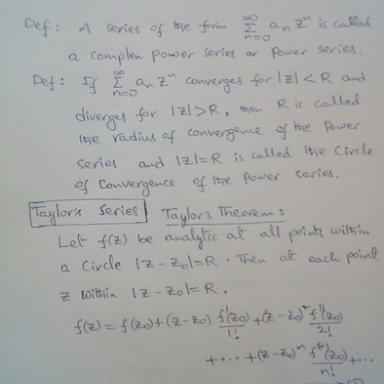 Def: A series of the form ∞Σn=0 aₙ zⁿ is called
a complex power series or Power series.
Def: If ∞Σn=0 aₙ zⁿ converges for |z| < R and
diverges for |z| > R, then R is called
the radius of convergence of the Power
series and |z| = R is called the Circle
of Convergence of the Power series.
Taylor's Series Taylor's Theorem:
Let f(z) be analytic at all points within
a Circle |z - z₀| = R. Then at each point
z within |z - z₀| = R,
f(z) = f(z₀) + (z - z₀) f'(z₀)/1! + (z - z₀)² f''(z₀)/2!
+ ... + (z - z₀)ⁿ f⁽ⁿ⁾(z₀)/n! + ...